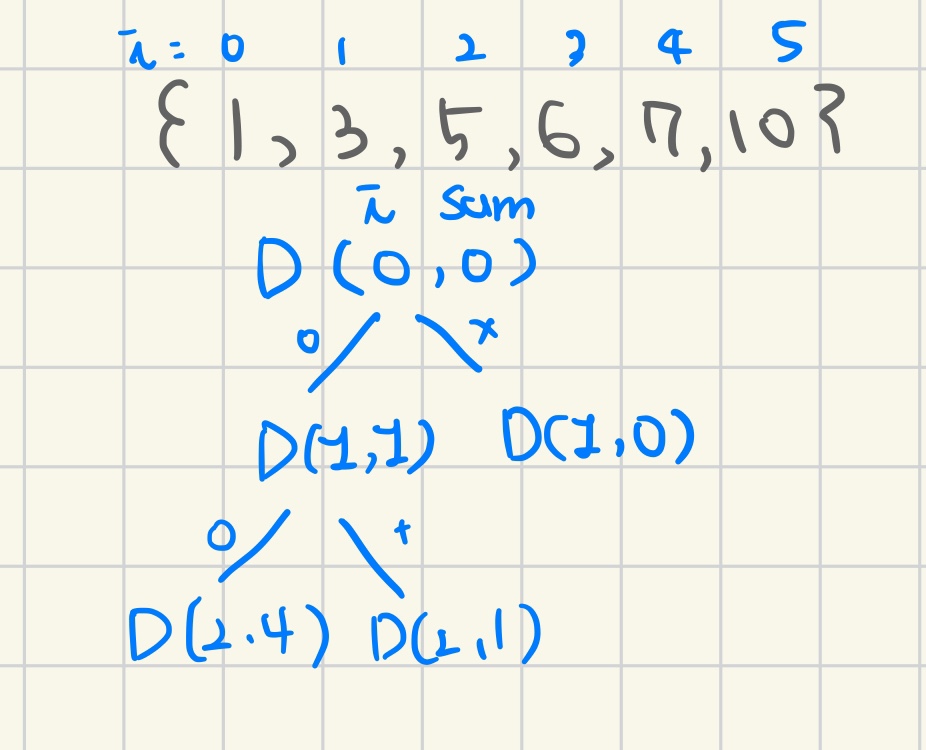 i = 0 1 2 3 4 5
{ 1, 3, 5, 6, 7, 10 }
i sum
D(0,0)
o x
D(1,1) D(1,0)
o x
D(2.4) D(2,1)